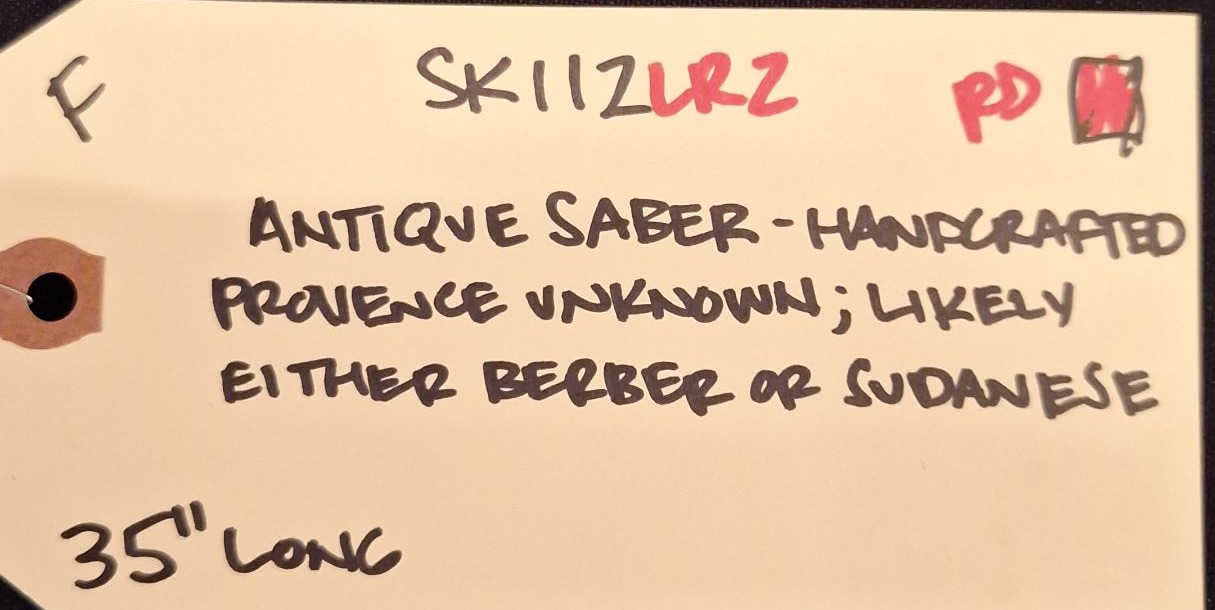 F SK112LR2 RD
ANTIQUE SABER - HANDCRAFTED
PROVENCE UNKNOWN; LIKELY
EITHER BERBER OR SUDANESE
35" LONG